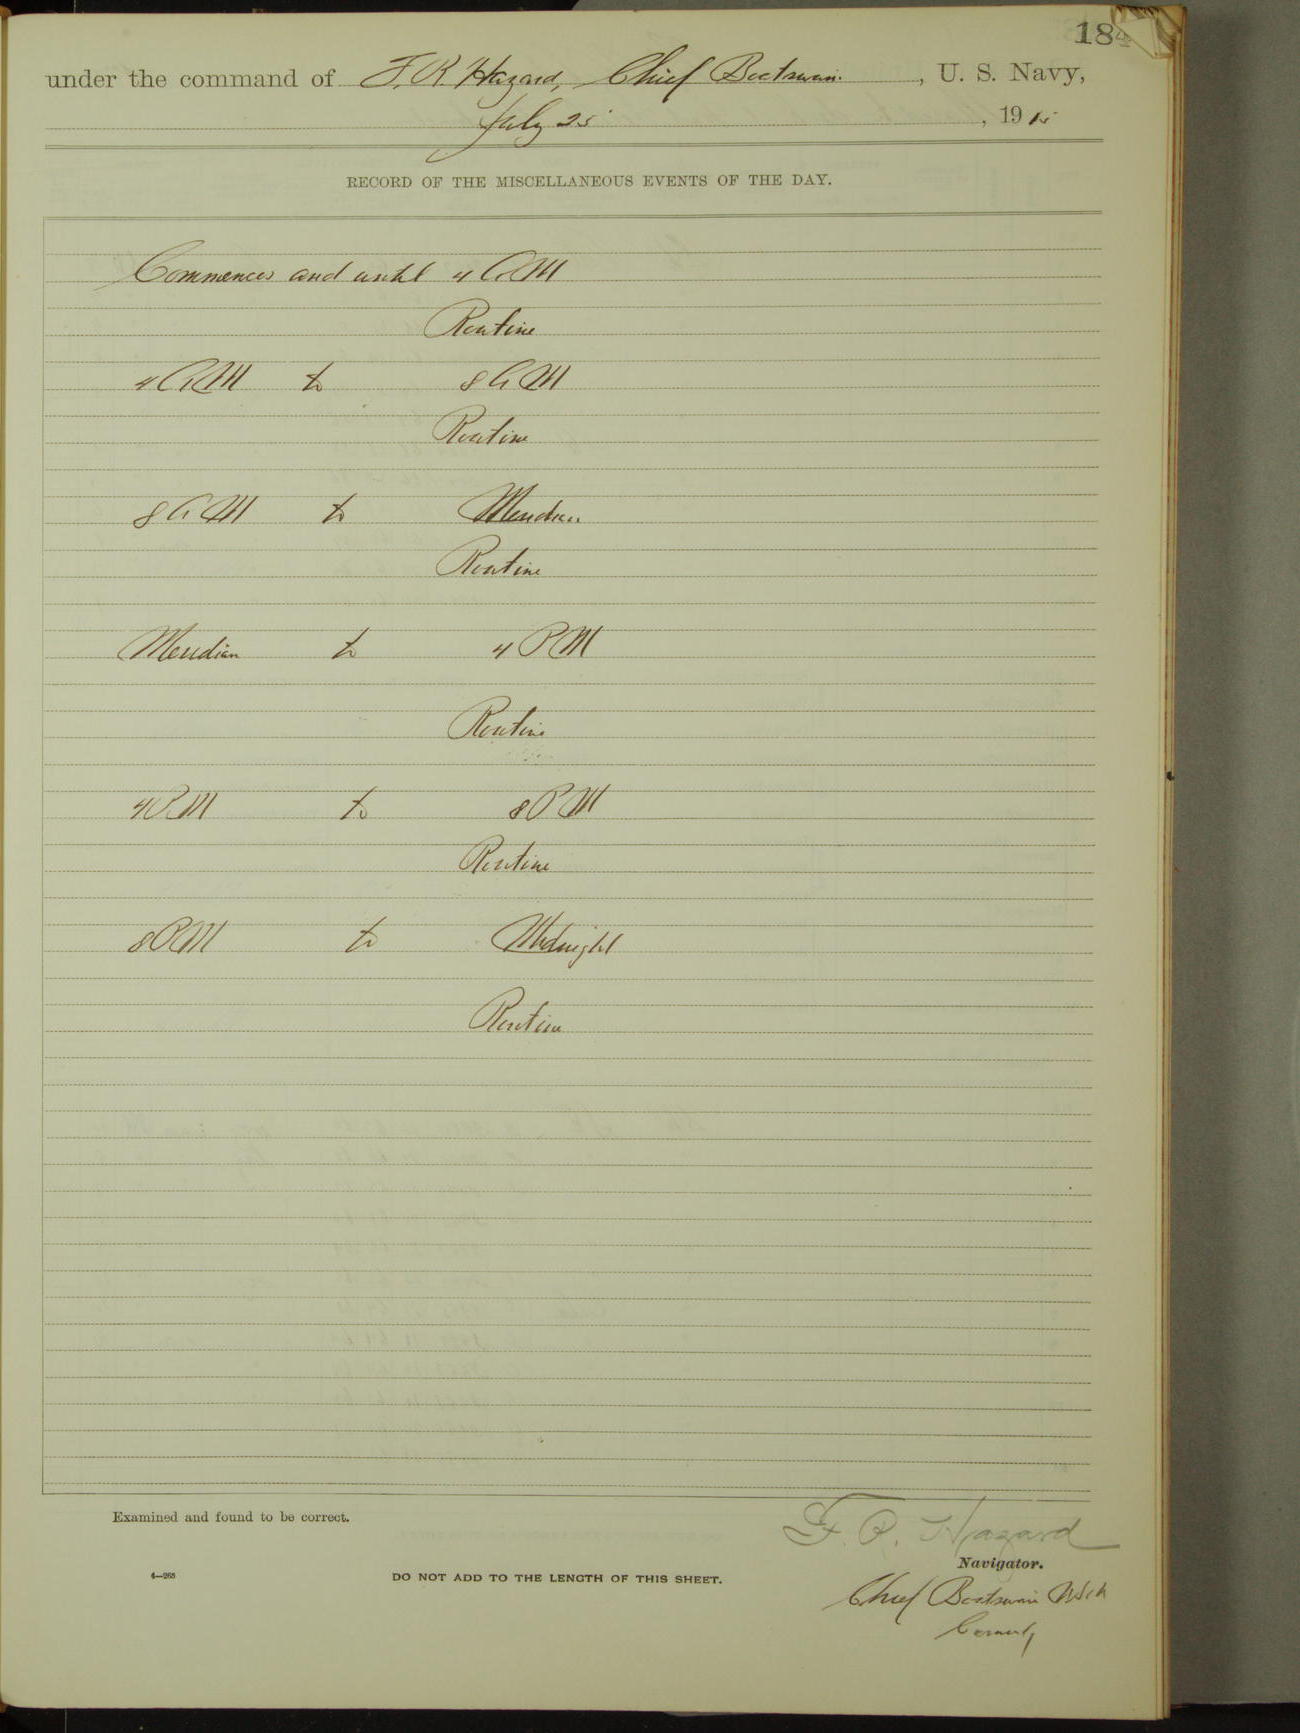 184
under the command of F. R. Hazard, Chief Boatswain. , U. S. Navy,
July 25 , 1915
RECORD OF THE MISCELLANEOUS EVENTS OF THE DAY.
Commences and until 4 AM
Routine
4 AM to 8 AM
Routine
8 AM to Meridian
Routine
Meridian to 4 PM
Routine
4 PM to 8 PM
Routine
8 PM to Midnight
Routine
Examined and found to be correct.
F. R. Hazard
Navigator.
4—265 DO NOT ADD TO THE LENGTH OF THIS SHEET.
Chief Boatswain USN